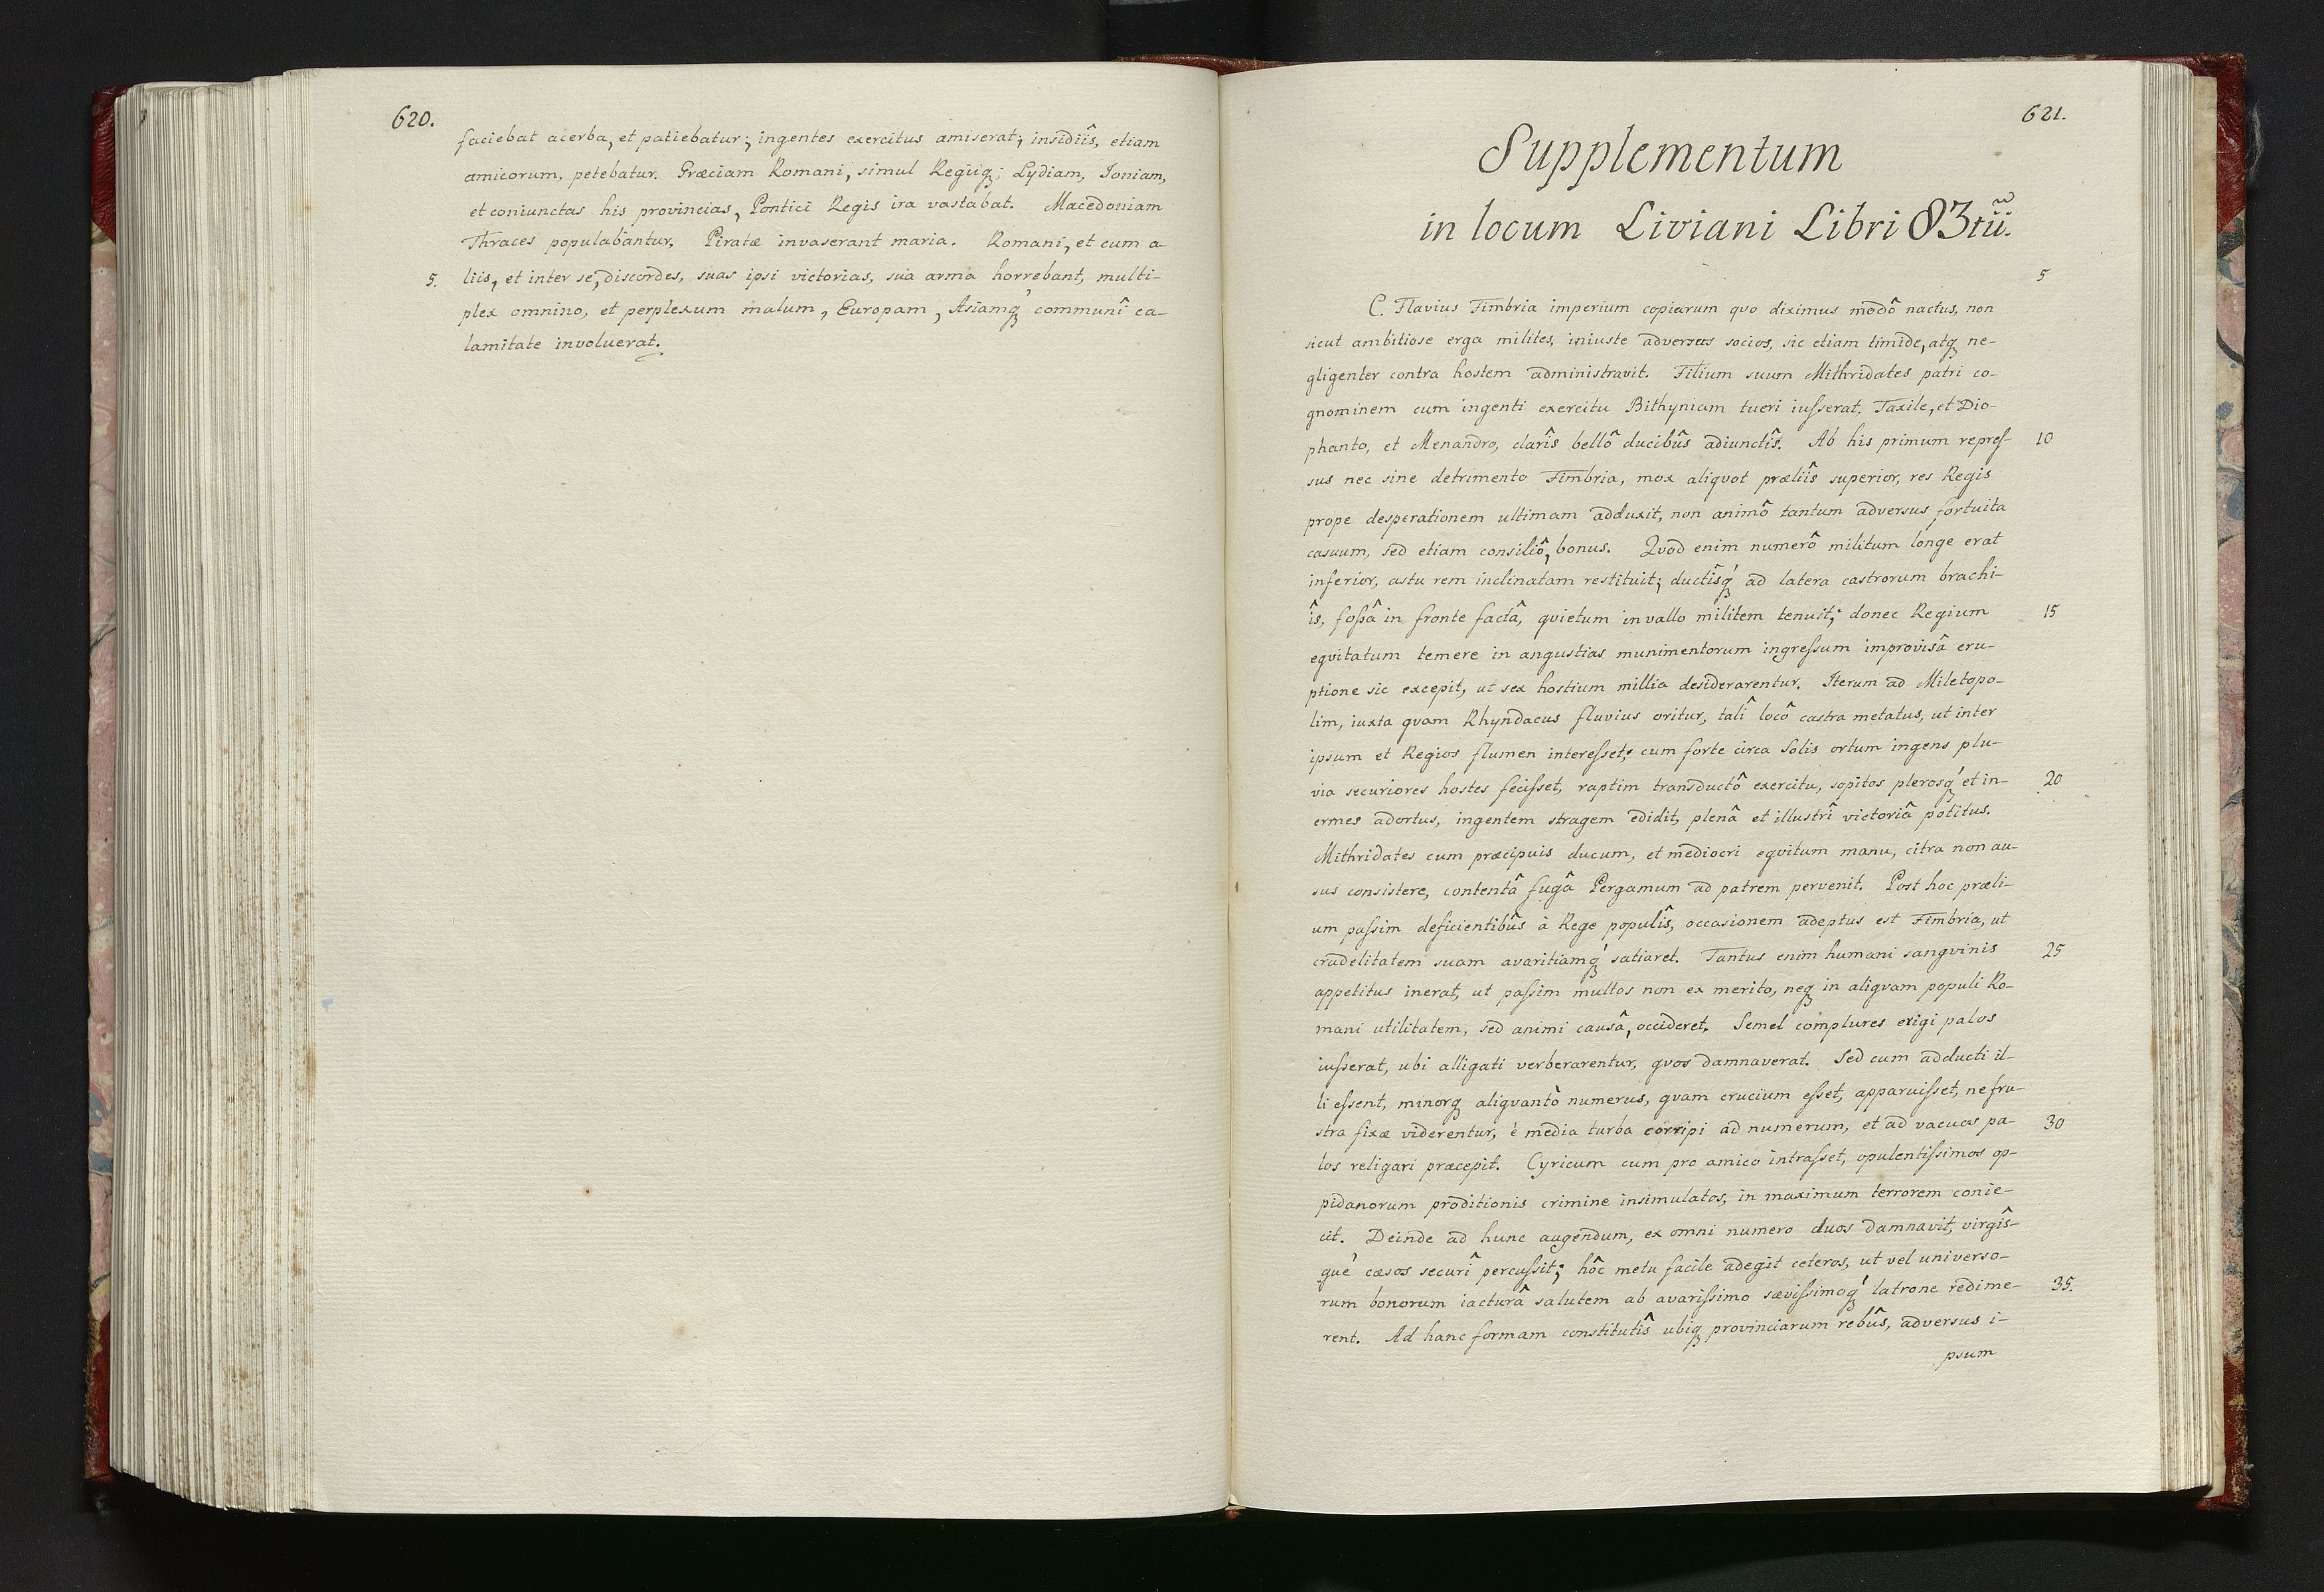 620.
faciebat acerba, et patiebatur; ingentes exercitus amiserat; insidiîs, etiam
amicorum, petebatur. Græciam Romani, simul Regiiq; Lydiam, Ioniam,
et coniunctas his provincias, Pontici Regis ira vastabat. Macedoniam
Thraces populabantur. Piratæ invaserant maria. Romani, et cum a-
5. liis, et inter se, discordes, suas ipsi victorias, sua arma horrebant, multi-
plex omnino, et perplexum malum, Europam, Asiamq́ communî ca-
lamitate involuerat.
621.
Supplementum
in locum Liviani Libri 83tii.
5
C. Flavius Fimbria imperium copiarum quo diximus modô nactus, non
sicut ambitiose erga milites, iniuste adversus socios, sic etiam timide, atq ne-
gligenter contra hostem administravit. Filium suum Mithridates patri co-
gnominem cum ingenti exercitu Bithyniam tueri iuſserat, Taxile, et Dio-
phanto, et Menandro, clarîs bellô ducibûs adiunctîs. Ab his primum repreſ- 10
sus nec sine detrimento Fimbria, mox aliquot præliîs superior, res Regis
prope desperationem ultimam adduxit, non animô tantum adversus fortuita
casuum, sed etiam consiliô, bonus. Quod enim numerô militum longe erat
inferior, astu rem inclinatam restituit; ductîsq́ ad latera castrorum brachi-
îs, foſsâ in fronte factâ, quietum in vallo militem tenuit; donec Regium 15
equitatum temere in angustias munimentorum ingreſsum improvisâ eru-
ptione sic excepit, ut sex hostium millia desiderarentur. Iterum ad Miletopo-
lim, iuxta quam Rhyndacus fluvius oritur, talî locô castra metatus, ut inter
ipsum et Regios flumen intereſset; cum forte circa Solis ortum ingens plu-
via securiores hostes feciſset, raptim transductô exercitu, sopitos plerosq́ et in- 20
ermes adortus, ingentem stragem edidit, plenâ et illustrî victoriâ potitus.
Mithridates cum præcipuis ducum, et mediocri equitum manu, citra non au-
sus consistere, contentâ fugâ Pergamum ad patrem pervenit. Post hoc præli-
um paſsim deficientibûs à Rege populîs, occasionem adeptus est Fimbria, ut
crudelitatem suam avaritiamq́ satiaret. Tantus enim humani sanguinis 25
appetitus inerat, ut paſsim multos non ex merito, neq in aliquam populi Ro-
mani utilitatem, sed animi causâ, occideret. Semel complures erigi palos
iuſserat, ubi alligati verberarentur, quos damnaverat. Sed cum adducti il-
li eſsent, minorq aliquantò numerus, quam crucium eſset, apparuiſset, ne fru-
stra fixæ viderentur, è media turba corripi ad numerum, et ad vacuos pa- 30
los religari præcepit. Cyricum cum pro amico intraſset, opulentiſsimos op-
pidanorum proditionis crimine insimulatos, in maximum terrorem conie-
cit. Deinde ad hunc augendum, ex omni numero duos damnavit, virgîs-
qué cæsos securî percuſsit; hôc metu facile adegit ceteros, ut vel universo-
rum bonorum iacturâ salutem ab avariſsimo sæviſsimoq́ latrone redime- 35.
rent. Ad hanc formam constitutîs ubiq provinciarum rebûs, adversus i-
psum